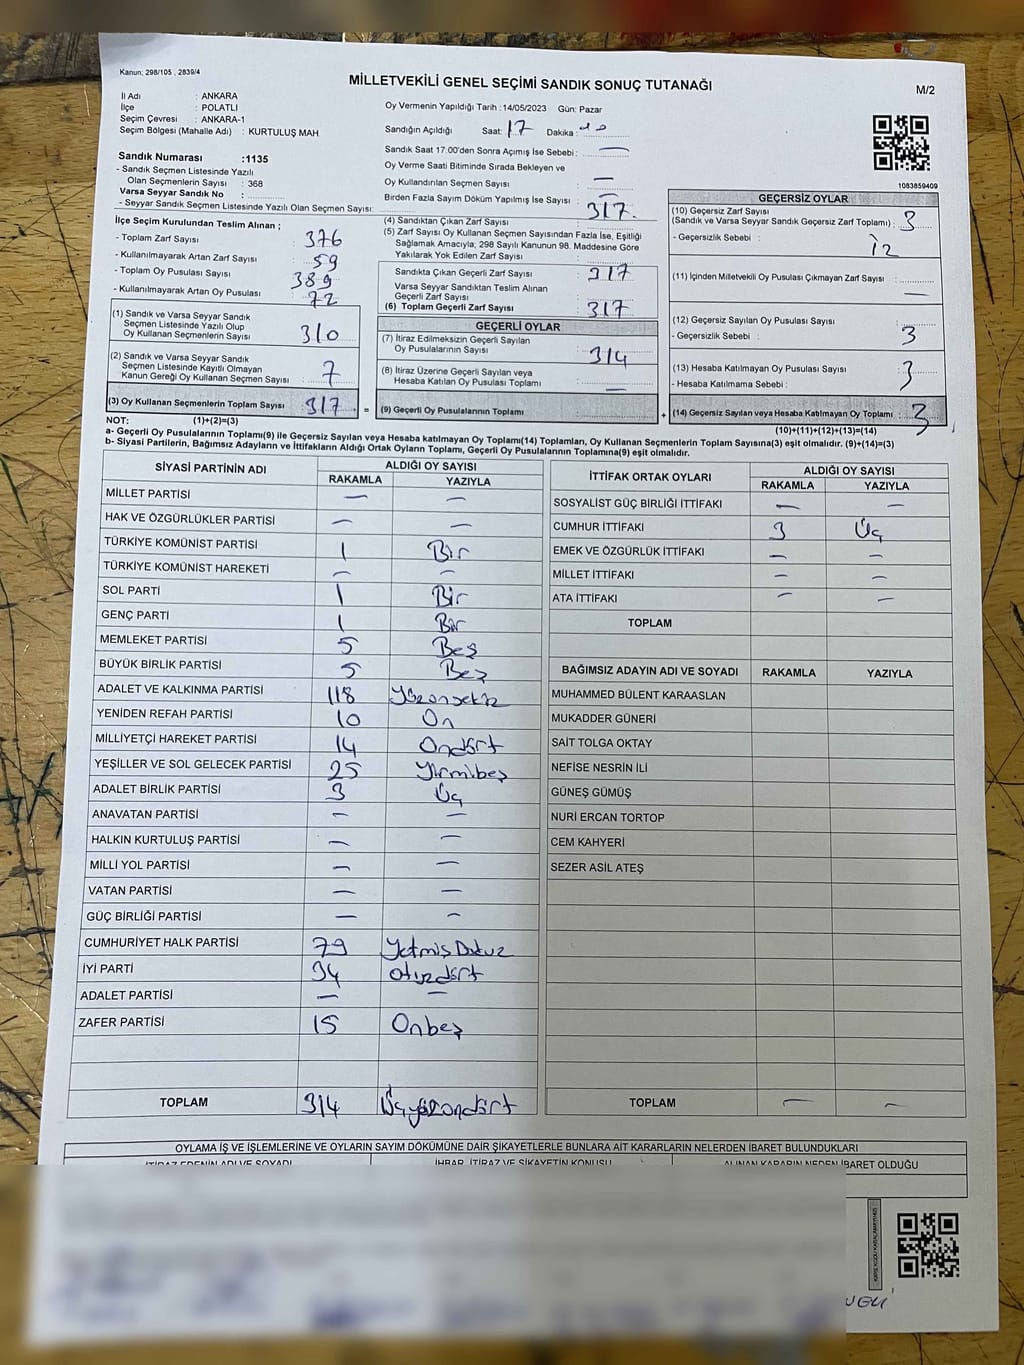 Kanun; 298/105 , 2839/4
MİLLETVEKİLİ GENEL SEÇİMİ SANDIK SONUÇ TUTANAĞI
M/2
İl Adı : ANKARA
İlçe : POLATLI
Seçim Çevresi : ANKARA-1
Seçim Bölgesi (Mahalle Adı) : KURTULUŞ MAH.
Sandık Numarası :1135
- Sandık Seçmen Listesinde Yazılı
Olan Seçmenlerin Sayısı : 368
Varsa Seyyar Sandık No :
- Seyyar Sandık Seçmen Listesinde Yazılı Olan Seçmen Sayısı:
Oy Vermenin Yapıldığı Tarih :14/05/2023 Gün: Pazar
Sandığın Açıldığı Saat: 17 Dakika :
Sandık Saat 17:00'den Sonra Açımış İse Sebebi : —
Oy Verme Saati Bitiminde Sırada Bekleyen ve
Oy Kullandırılan Seçmen Sayısı : —
Birden Fazla Sayım Döküm Yapılmış İse Sayısı : —
1083859409
İlçe Seçim Kurulundan Teslim Alınan ;
- Toplam Zarf Sayısı : 376
- Kullanılmayarak Artan Zarf Sayısı : 59
- Toplam Oy Pusulası Sayısı : 389
- Kullanılmayarak Artan Oy Pusulası : 72
(1) Sandık ve Varsa Seyyar Sandık
Seçmen Listesinde Yazılı Olup
Oy Kullanan Seçmenlerin Sayısı : 310
(2) Sandık ve Varsa Seyyar Sandık
Seçmen Listesinde Kayıtlı Olmayan
Kanun Gereği Oy Kullanan Seçmen Sayısı : 7
(3) Oy Kullanan Seçmenlerin Toplam Sayısı : 317 =
(4) Sandıktan Çıkan Zarf Sayısı : 317
(5) Zarf Sayısı Oy Kullanan Seçmen Sayısından Fazla İse, Eşitliği
Sağlamak Amacıyla, 298 Sayılı Kanunun 98. Maddesine Göre
Yakılarak Yok Edilen Zarf Sayısı :
Sandıkta Çıkan Geçerli Zarf Sayısı : 317
Varsa Seyyar Sandıktan Teslim Alınan
Geçerli Zarf Sayısı :
(6) Toplam Geçerli Zarf Sayısı : 317
GEÇERLİ OYLAR
(7) İtiraz Edilmeksizin Geçerli Sayılan
Oy Pusulalarının Sayısı : 314
(8) İtiraz Üzerine Geçerli Sayılan veya
Hesaba Katılan Oy Pusulası Toplamı : —
(9) Geçerli Oy Pusulalarının Toplamı : +
GEÇERSİZ OYLAR
(10) Geçersiz Zarf Sayısı
(Sandık ve Varsa Seyyar Sandık Geçersiz Zarf Toplamı) : 3
- Geçersizlik Sebebi :
(11) İçinden Milletvekili Oy Pusulası Çıkmayan Zarf Sayısı : —
(12) Geçersiz Sayılan Oy Pusulası Sayısı :
- Geçersizlik Sebebi : 3
(13) Hesaba Katılmayan Oy Pusulası Sayısı : 3
- Hesaba Katılmama Sebebi :
(14) Geçersiz Sayılan veya Hesaba Katılmayan Oy Toplamı : 3
NOT: (1)+(2)=(3)
(10)+(11)+(12)+(13)=(14)
a- Geçerli Oy Pusulalarının Toplamı(9) ile Geçersiz Sayılan veya Hesaba katılmayan Oy Toplamı(14) Toplamları, Oy Kullanan Seçmenlerin Toplam Sayısına(3) eşit olmalıdır. (9)+(14)=(3)
b- Siyasi Partilerin, Bağımsız Adayların ve İttifakların Aldığı Ortak Oyların Toplamı, Geçerli Oy Pusulalarının Toplamına(9) eşit olmalıdır.
SİYASİ PARTİNİN ADI ALDIĞI OY SAYISI
RAKAMLA YAZIYLA
MİLLET PARTİSİ — —
HAK VE ÖZGÜRLÜKLER PARTİSİ — —
TÜRKİYE KOMÜNİST PARTİSİ 1 Bir
TÜRKİYE KOMÜNİST HAREKETİ — —
SOL PARTİ 1 Bir
GENÇ PARTİ 1 Bir
MEMLEKET PARTİSİ 5 Beş
BÜYÜK BİRLİK PARTİSİ 5 Beş
ADALET VE KALKINMA PARTİSİ 118 Yüzonsekiz
YENİDEN REFAH PARTİSİ 10 On
MİLLİYETÇİ HAREKET PARTİSİ 14 Ondört
YEŞİLLER VE SOL GELECEK PARTİSİ 25 Yirmibeş
ADALET BİRLİK PARTİSİ 3 Üç
ANAVATAN PARTİSİ — —
HALKIN KURTULUŞ PARTİSİ — —
MİLLİ YOL PARTİSİ — —
VATAN PARTİSİ — —
GÜÇ BİRLİĞİ PARTİSİ — —
CUMHURİYET HALK PARTİSİ 79 Yetmiş Dokuz
İYİ PARTİ 34 Otuzdört
ADALET PARTİSİ — —
ZAFER PARTİSİ 15 Onbeş
TOPLAM 314 Üçyüzondört
İTTİFAK ORTAK OYLARI ALDIĞI OY SAYISI
RAKAMLA YAZIYLA
SOSYALİST GÜÇ BİRLİĞİ İTTİFAKI — —
CUMHUR İTTİFAKI 3 Üç
EMEK VE ÖZGÜRLÜK İTTİFAKI — —
MİLLET İTTİFAKI — —
ATA İTTİFAKI — —
TOPLAM
BAĞIMSIZ ADAYIN ADI VE SOYADI RAKAMLA YAZIYLA
MUHAMMED BÜLENT KARAASLAN
MUKADDER GÜNERİ
SAİT TOLGA OKTAY
NEFİSE NESRİN İLİ
GÜNEŞ GÜMÜŞ
NURİ ERCAN TORTOP
CEM KAHYERİ
SEZER ASİL ATEŞ
TOPLAM — —
OYLAMA İŞ VE İŞLEMLERİNE VE OYLARIN SAYIM DÖKÜMÜNE DAİR ŞİKAYETLERLE BUNLARA AİT KARARLARIN NELERDEN İBARET BULUNDUKLARI
İTİRAZ EDENİN ADI VE SOYADI İHBAR, İTİRAZ VE ŞİKAYETİN KONUSU ALINAN KARARIN NEDEN İBARET OLDUĞU